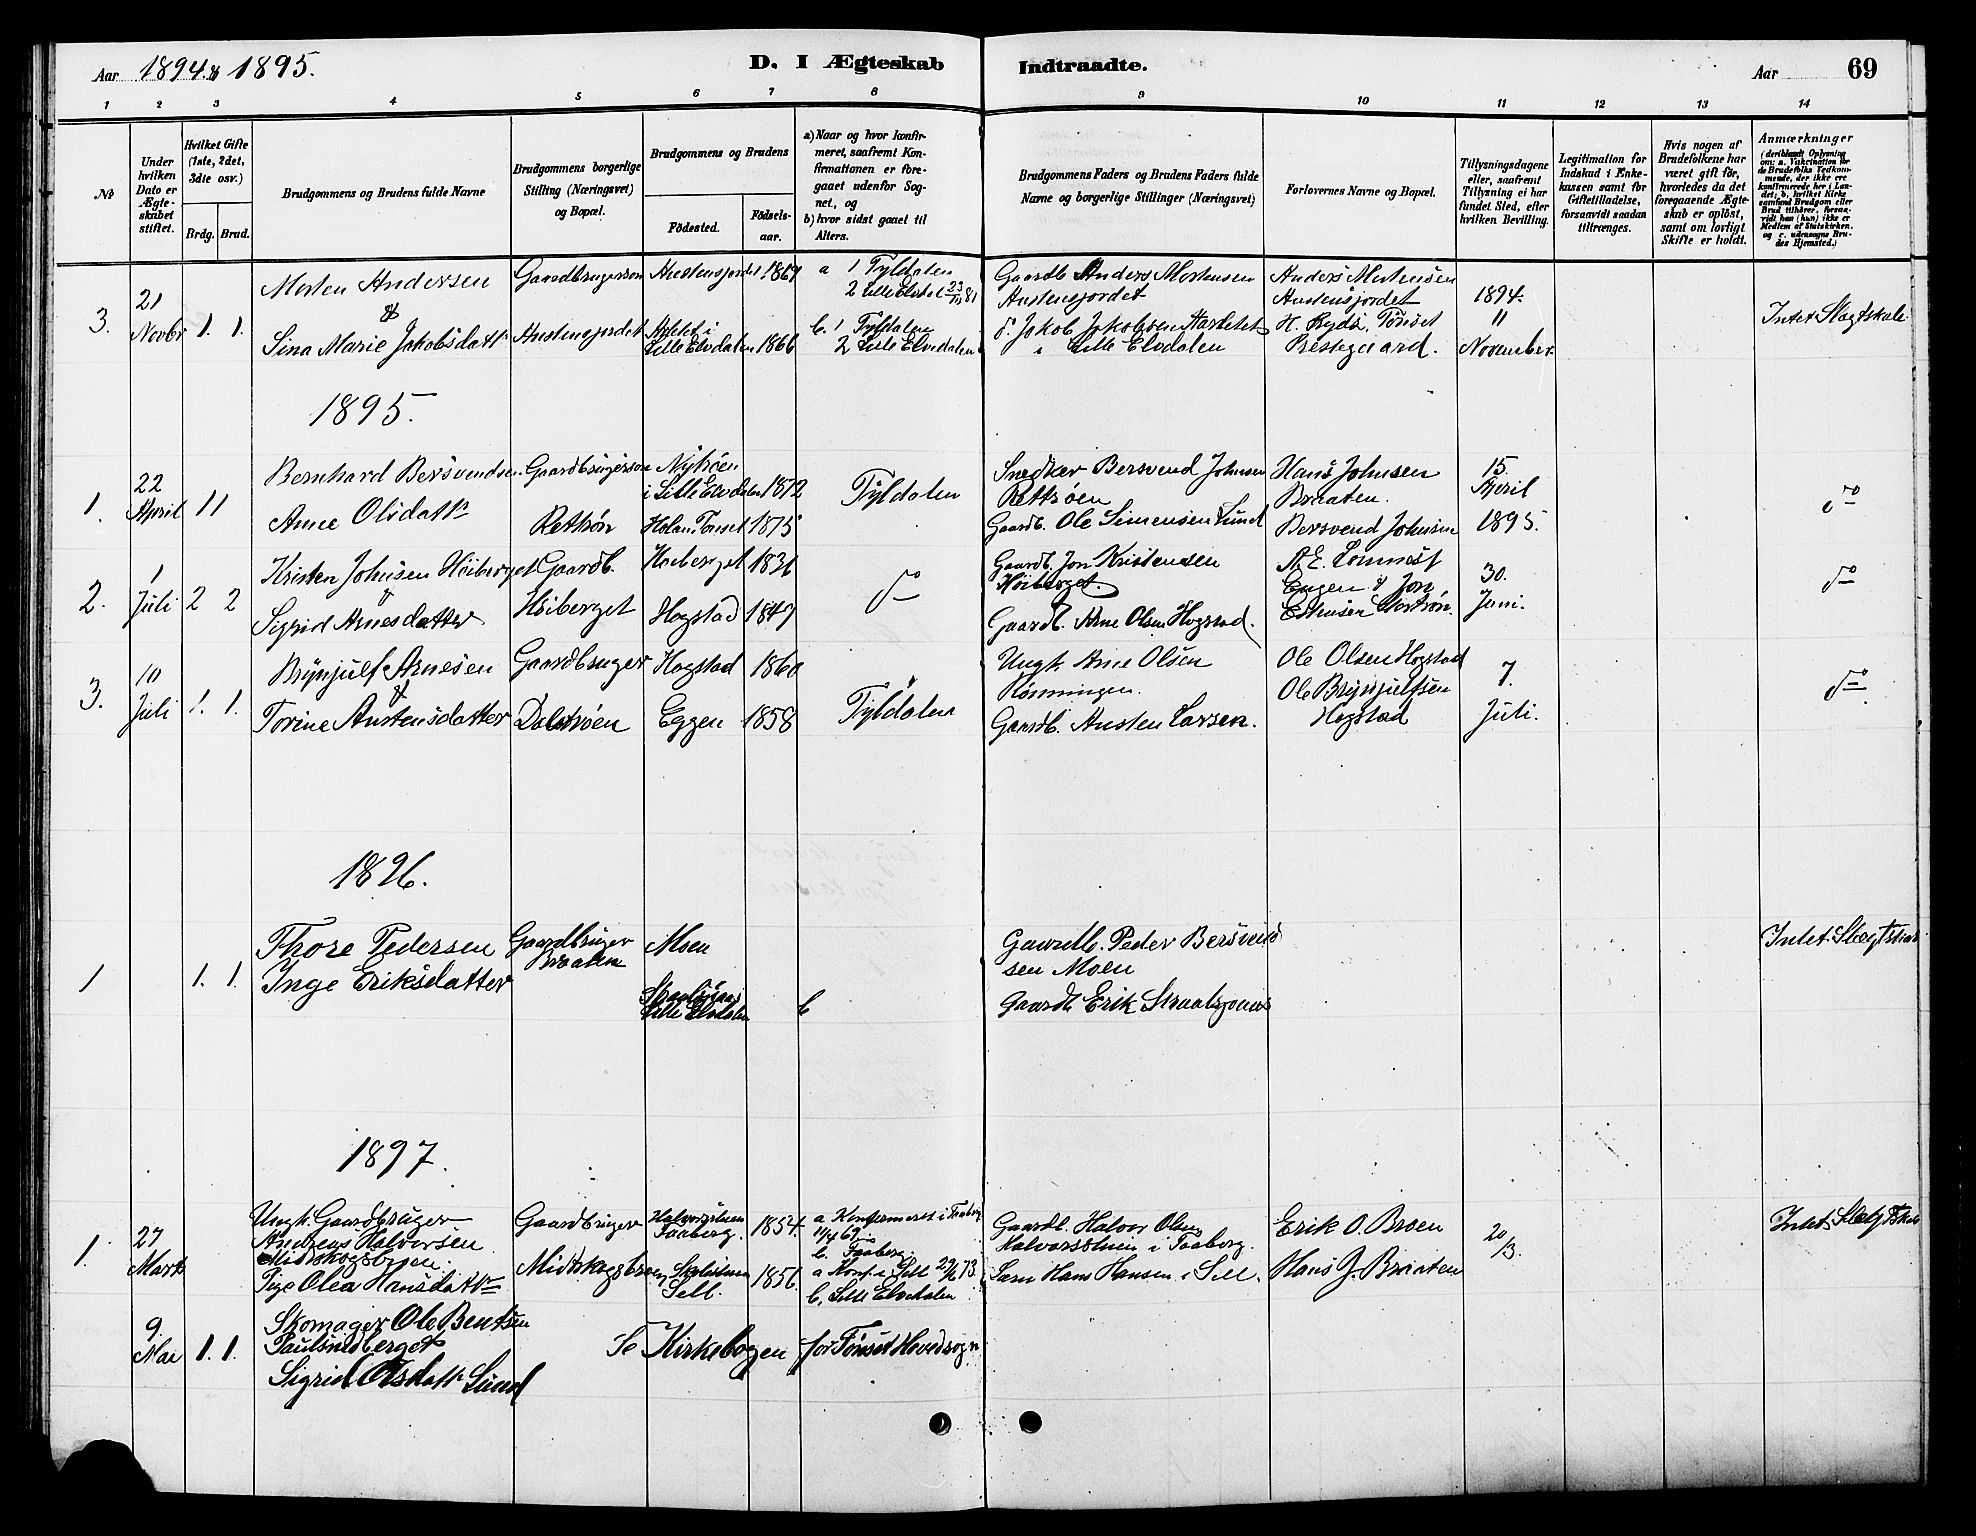 Aar 1894 & 1895.
D. I Ægteskab Indtraadte.
Aar 69
1 2 3 4 5 6 7 8 9 10 11 12 13 14
No
Under hvilken Dato er Ægteskabet stiftet.
Hvilket Gifte (1ste, 2det, 3die osv.)
Brdg. Brud.
Brudgommens og Brudens fulde Navne
Brudgommens borgerlige Stilling (Næringsvei) og Bopæl.
Brudgommens og Brudens
Födested.
Födselsaar.
a) Naar og hvor konfirmeret, saafremt Konfirmationen er foregaaet udenfor Sognet, og
b) hvor sidst gaaet til Alters.
Brudgommens Faders og Brudens Faders fulde Navne og borgerlige Stillinger (Næringsvei)
Forlovernes Navne og Bopæl.
Tillysningsdagene eller, saafremt Tillysning ei har fundet Sted, efter hvilken Bevilling.
Legitimation for Indskud i Enkekassen samt for Giftetilladelse, forsaavidt saadan tiltrænges.
Hvis nogen af Brudefolkene har været gift för, hvorledes da det foregaaende Ægteskab er oplöst, samt om lovligt Skifte er holdt.
Anmærkninger (deriblandt Oplysning om: a. Vakcination for de Brudefolks Vedkommende, der ikke ere konfirmerede her i Landet; b. hvilket Kirkesamfund Brudgom eller Brud tilhörer, forsaavidt han (hun) ikke er Medlem af Statskirken, og c. udensogns Brudes Hjemsted.)
3. 21 Novbr 1. 1.
Morten Andersen
&
Sina Marie Jakobsdattr
Gaardbrugersøn
Austensjordet
Austensjordet 1869
i Lille Elvdalen 1866
a 1 Tyldalen
2 Lille Elvdal
b. 1 Tyldalen
2 Lille Elvedalen
Gaardb Anders Mortensen
Austensjordet
Jakob Jakobsen
i Lille Elvdalen
Anders Mortensen
Austensjordet
H. Ryds, Tönset
Prestegaard.
1894.
11
November.
Intet Slægtskab
1895.
1. 22 April 1 1
Bernhard Bersvendsen
Anne Olsdattr
Gaardbrugersøn
Retrøn
Nytrøen
i Lille Elvdalen 1872
Holan Tønset 1875
Tyldalen
Snedker Bersvend Johnsen
Retrøen
Gaardb. Ole Simensen Lund
Hans Johnsen
Braaten.
Bersvend Johnsen
15.
April
1895.
do
2. 1 Juli 2 2
Kristen Johnsen Höiberget
&
Sigrid Arnesdatter
Gaardb.
Höiberget
Höiberget 1836
Hogstad 1849
do
Gaardb. Jon Kristensen
Höiberget.
Gaardb. Arne Olsen Hogstad.
Eugen & Jon
30.
Juni.
do
3. 10 Juli 1. 1.
Brynjulf Arnesen
&
Torine Austensdatter
Gaardbruger
Dalstrøen
Hogstad 1860
Eggen 1858
Tyldalen
Ungk. Arne Olsen
Rønningen.
Gaardb. Austen Larsen.
Ole Olsen Hogstad
Ole Brynjulfsen
Hogstad
7.
Juli.
do
1896.
1 1. 1.
Thore Pedersen
Inge Eriksdatter
Gaardbruger
Braaten
Moen
Lille Elvdalen
b
Gaardb. Peder Bersvendsen Moen
Gaardb Erik Straalsjoaas
Intet Slægtskab
1897.
1. 27 Marts
Ungk. Gaardbruger
Andreas Halvorsen
Midtskogsbroen.
Pige Olea Hansdattr
Gaardbruger
Midtskogsbroen
Halvorsstuen
Faaberg. 1854
Sell. 1856
a Konfirmeret i Faaberg
11/4 69
b. Faaberg.
a Konf. i Sell
b. Lille Elvdalen
Gaardb. Halvor Olsen
Halvorsstuen i Faaberg.
Hans Hansen i Sell.
Erik O. Broen
Hans J. Braaten
20/3.
Intet Slægtskab
9. Mai 1. 1.
Skomager Ole Bentsen
Sigrid Olsdattr Lund
Se Kirkebogen for Tönset Hovedsogn